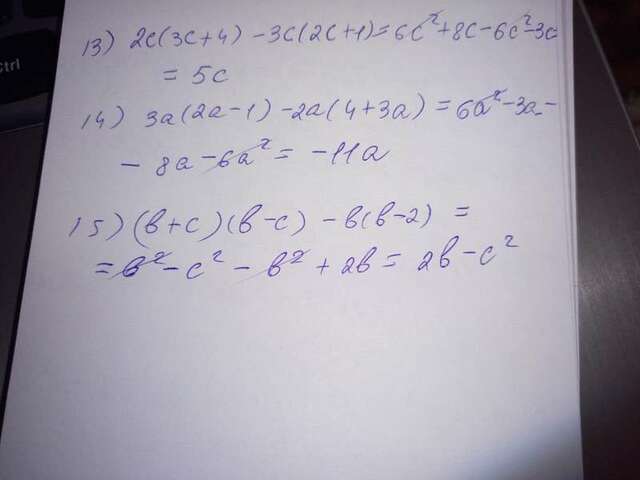 Ctrl
13) 2c(3c+4) -3c(2c+1)=6c²+8c-6c²-3c
= 5c
14) 3a(2a-1) -2a(4+3a) = 6a²-3a-
- 8a-6a² = -11a
15) (в+c)(в-c) - в(в-2) =
= в²-c² - в² + 2в = 2в-c²